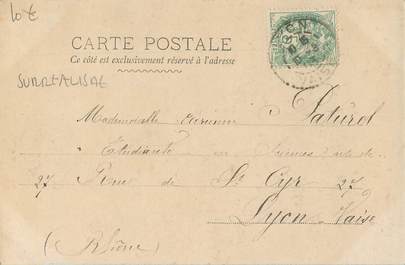 10 €
CARTE POSTALE
Ce côté est exclusivement réservé à l'adresse
SURREALISME
Mademoiselle
Etudiante en
27 de St Cyr 27
Lyon Vaise
(Rhône)